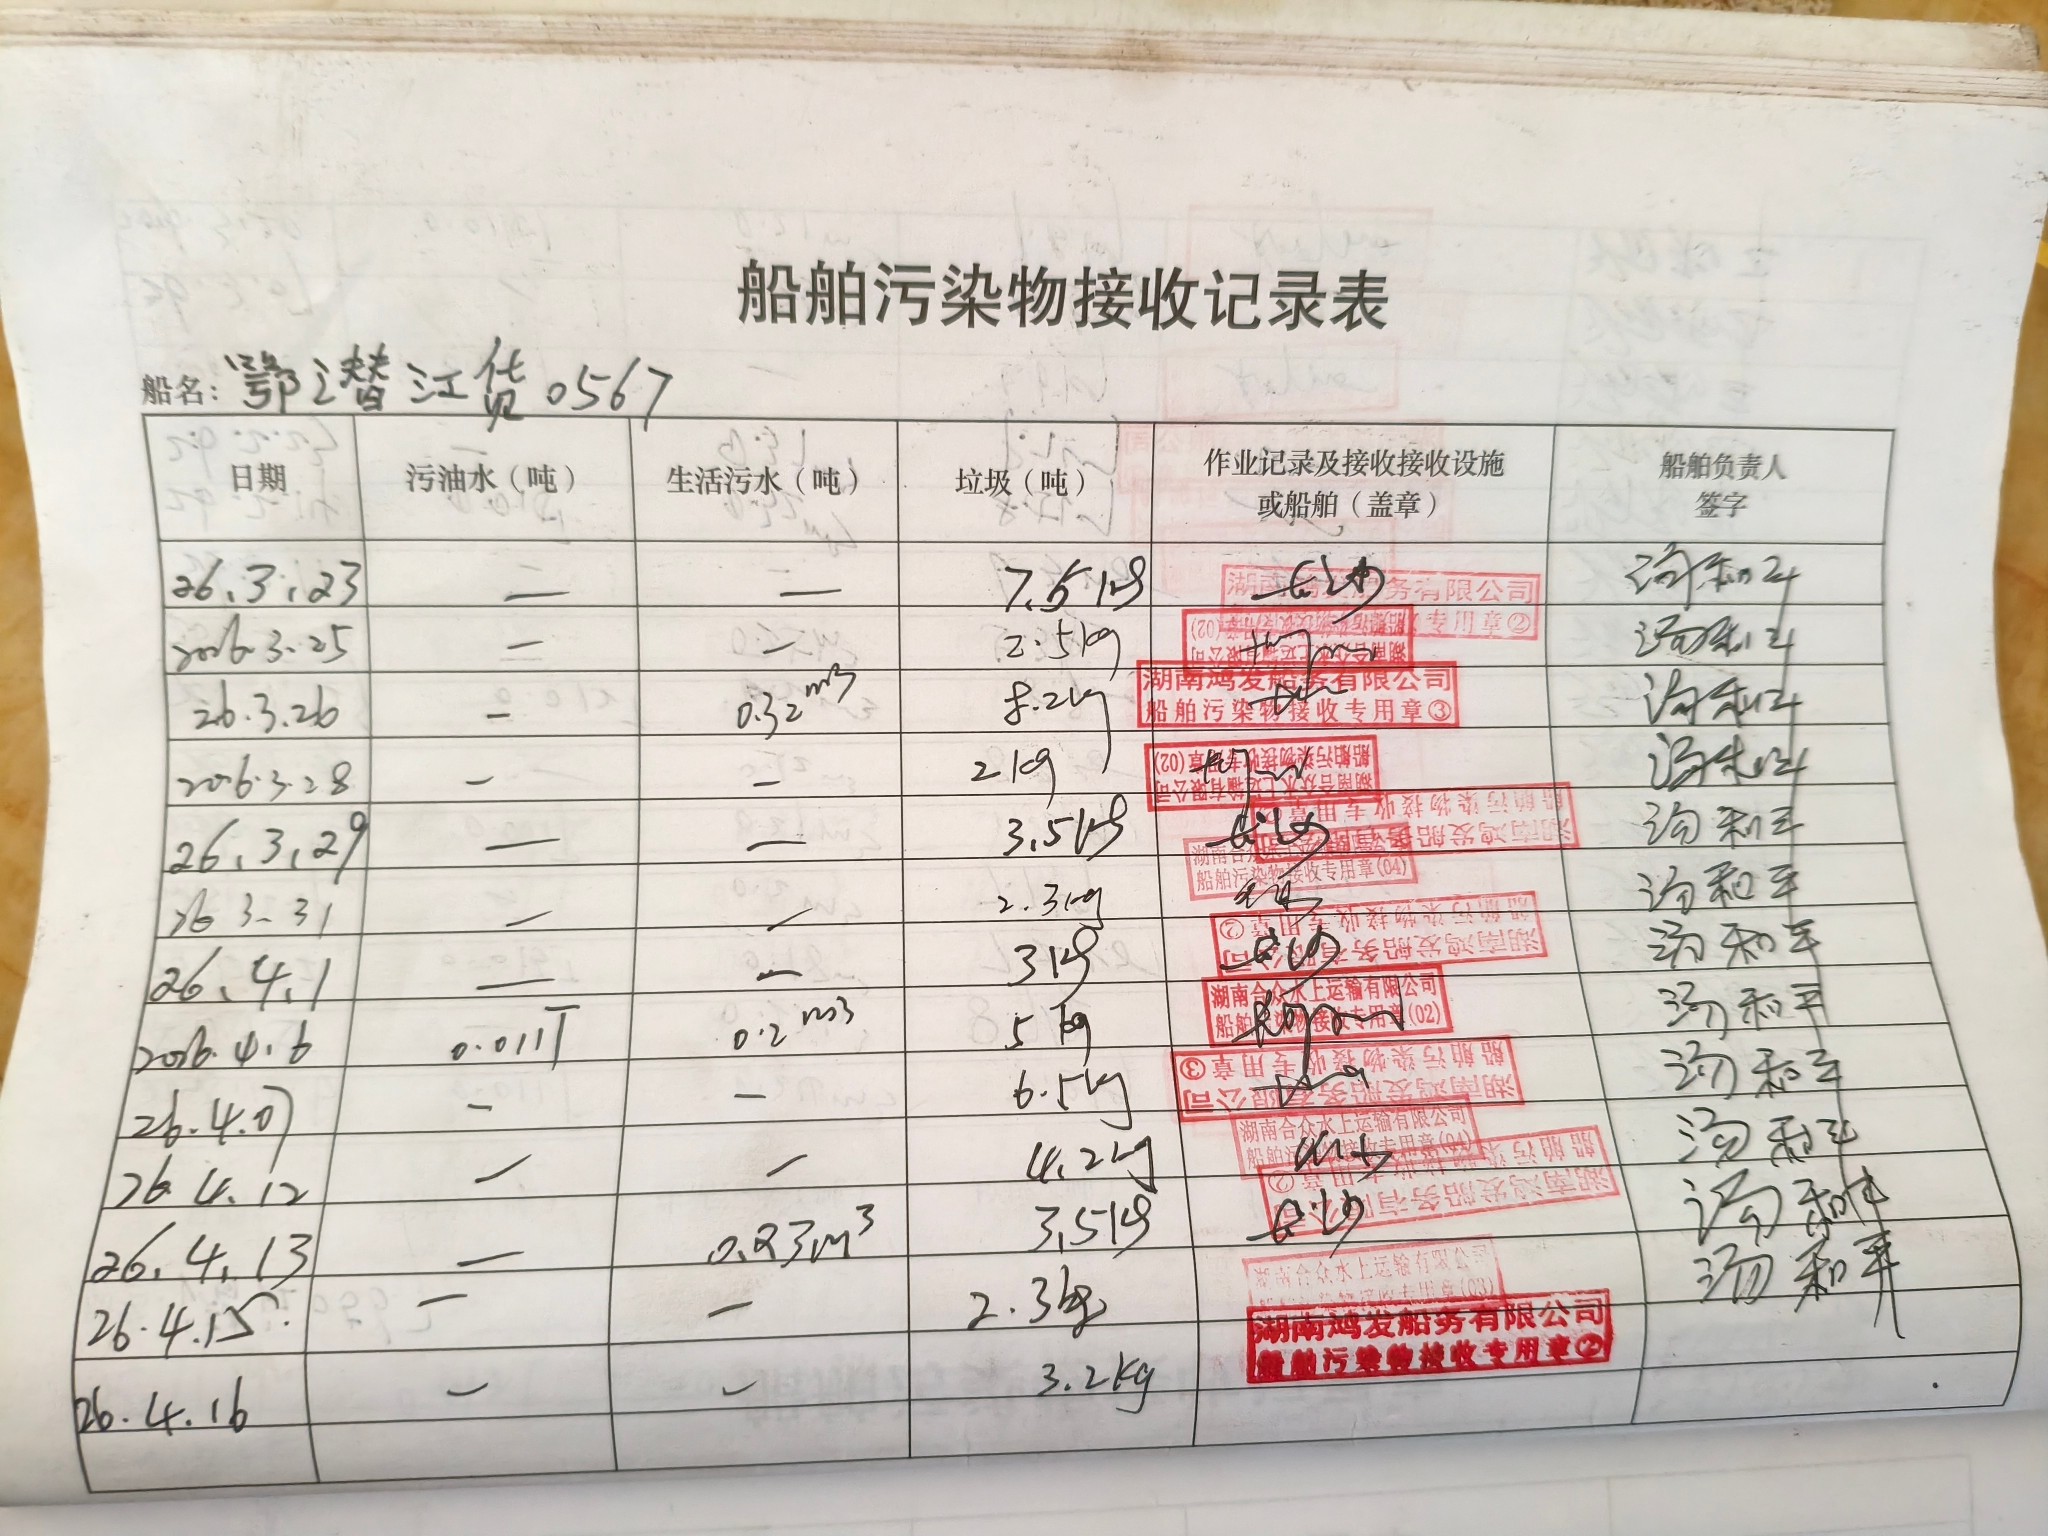 船舶污染物接收记录表
船名：鄂潜江货0567
日期 污油水（吨） 生活污水（吨） 垃圾（吨） 作业记录及接收接收设施或船舶（盖章） 船舶负责人签字
26.3.23 — — 7.5kg 长沙 湖南鸿发船务有限公司 专用章② 汤和平
2026.3.25 — — 2.5kg 湖南合众水上运输有限公司 船舶污染物接收专用章(02) 汤和平
26.3.26 — 0.32m3 8.2kg 湖南鸿发船务有限公司 船舶污染物接收专用章③ 汤和平
2026.3.28 — — 2kg 湖南合众水上运输有限公司 船舶污染物接收专用章(02) 汤和平
26.3.29 — — 3.5kg 长沙 湖南鸿发船务有限公司 船舶污染物接收专用章 汤和平
26.3.31 — — 2.3kg 湖南合众 船舶污染物接收专用章(04) 汤和平
26.4.1 — — 3kg 长沙 湖南鸿发船务有限公司 船舶污染物接收专用章② 汤和平
2026.4.6 0.011T 0.2m3 5kg 湖南合众水上运输有限公司 船舶污染物接收专用章(02) 汤和平
26.4.07 — — 6.5kg 湖南鸿发船务有限公司 船舶污染物接收专用章③ 汤和平
26.4.12 — — 4.2kg 湖南合众水上运输有限公司 船舶污染物接收专用章 汤和平
26.4.13 — 0.23m3 3.5kg 长沙 湖南鸿发船务有限公司 船舶污染物接收专用章② 汤和平
26.4.15 — — 2.3kg 湖南合众水上运输有限公司 专用章(03) 汤和平
26.4.16 — — 3.2kg 湖南鸿发船务有限公司 船舶污染物接收专用章②